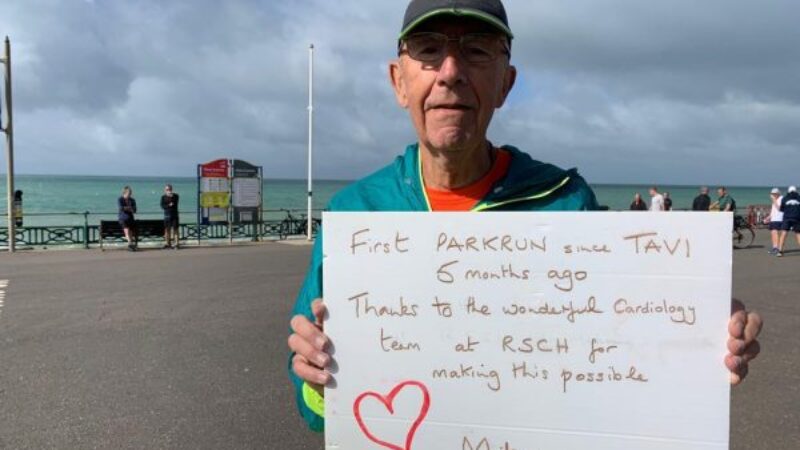 First PARKRUN since TAVI
5 months ago
Thanks to the wonderful Cardiology
team at RSCH for
making this possible